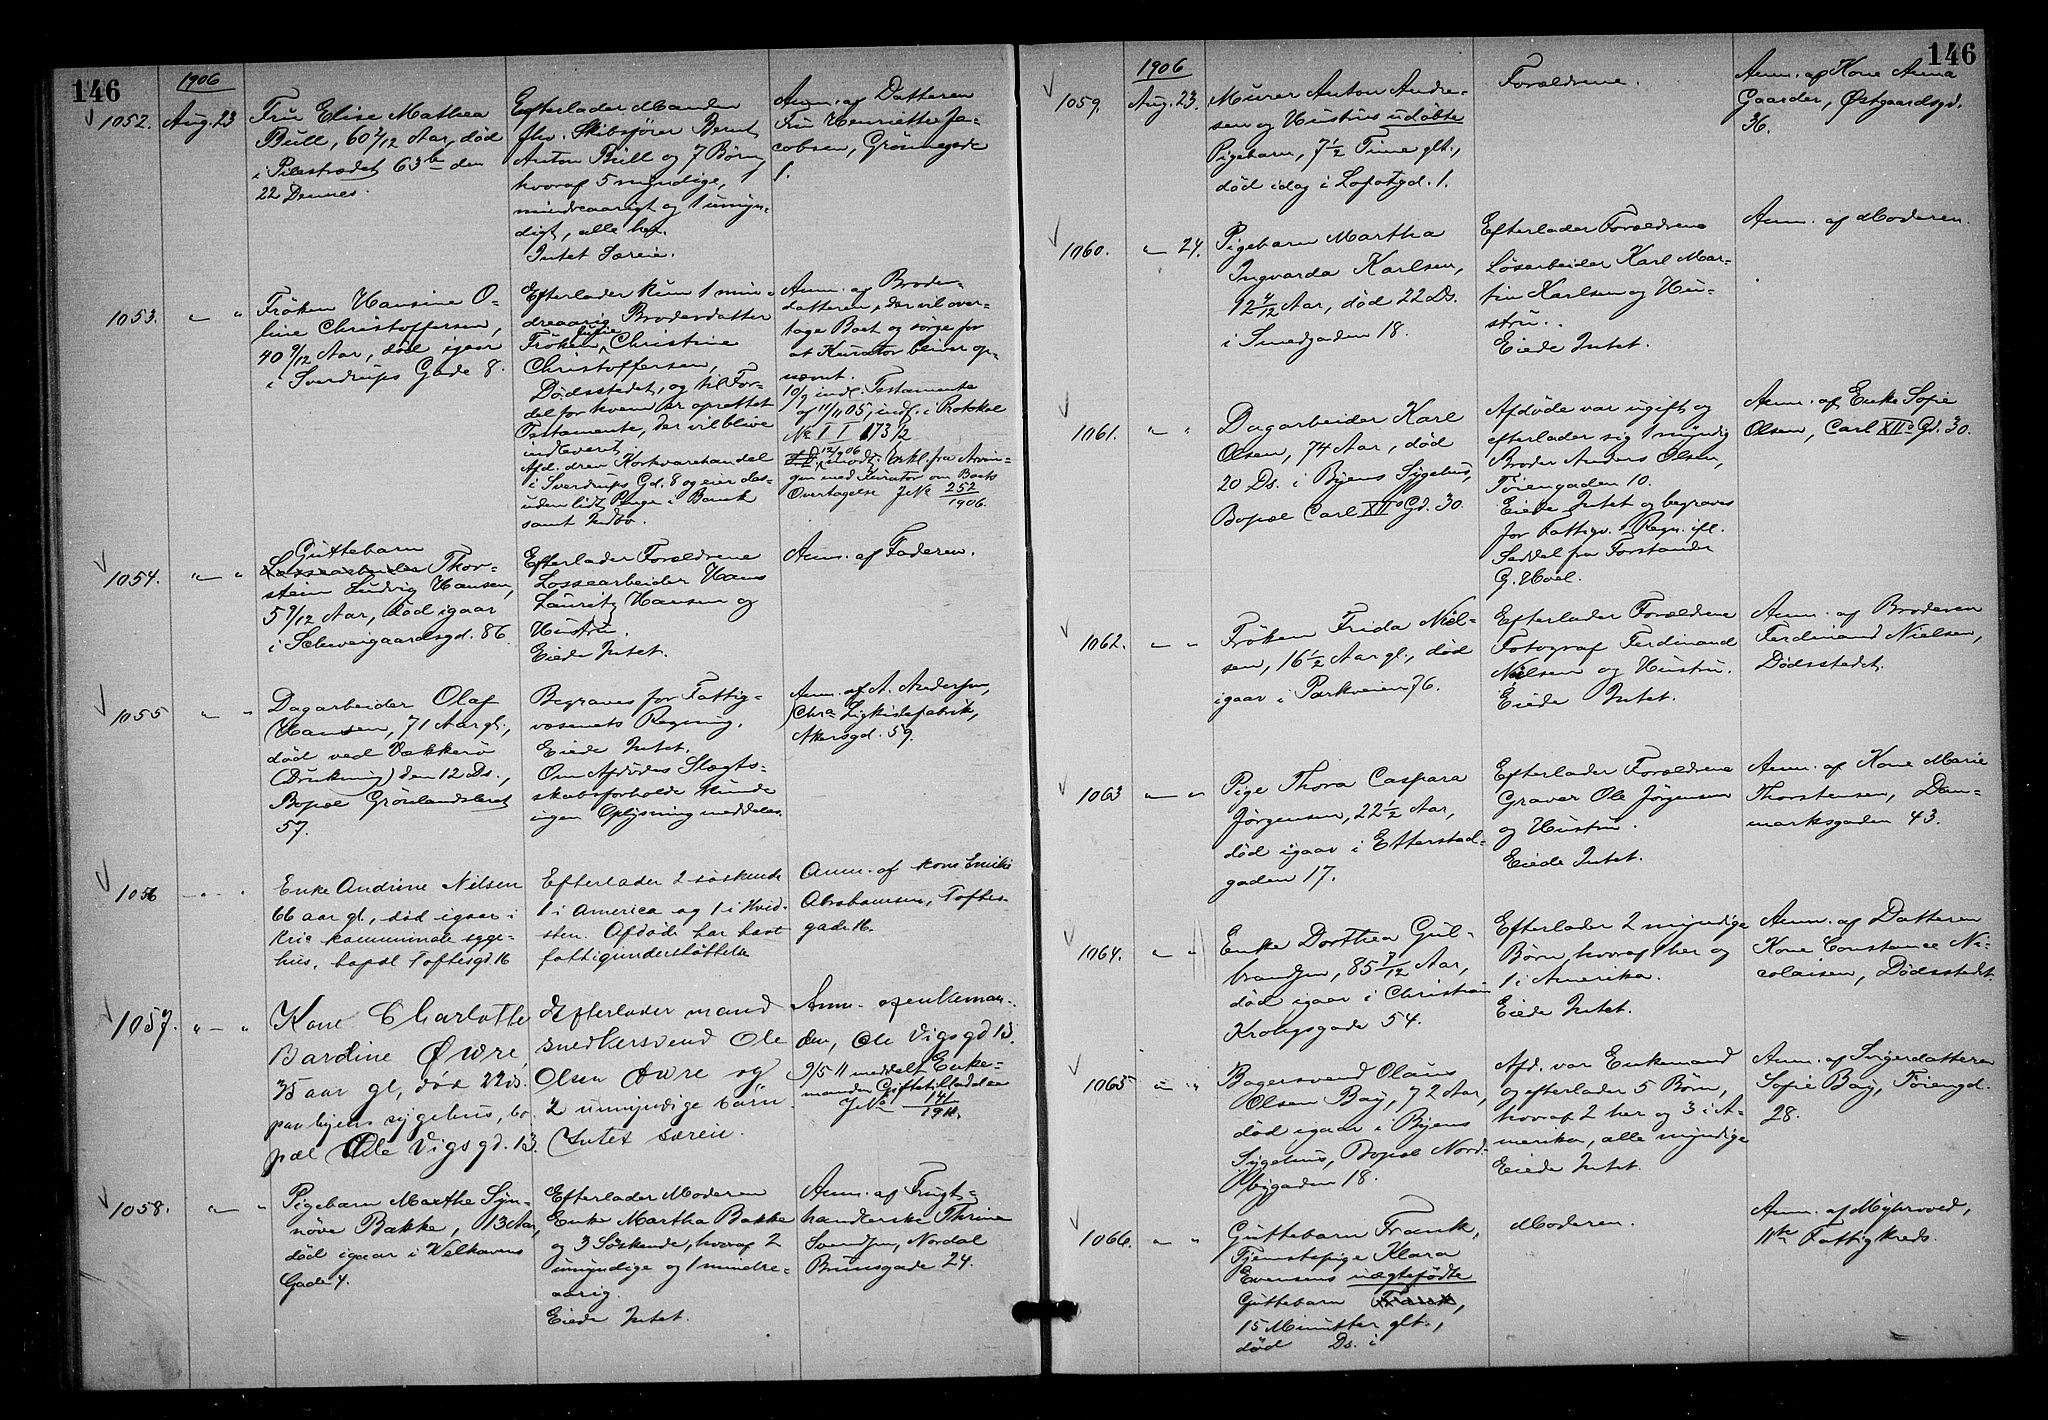 146
1906
1052. Aug. 23
Fru Elise Mathea
Bull, 60 2/12 Aar, død
i Pilestrædet 63b den
22 Dennes.
Efterlader Manden
fhv. Skibsfører Bernt
Anton Bull og 7 Børn,
hvoraf 5 myndige, 1
mindreaarigt og 1 umyn-
digt, alle her.
Intet Særeie.
Anm. af Datteren
Fru Henriette Ja-
cobsen, Grønnegade
1.
1053. " — "
Frøken Hansine O-
line Christoffersen,
40 9/12 Aar, død igaar
i Sverdrups Gade 8.
Efterlader kun 1 min-
dreaarig Broderdatter
Frøken Julie Christine
Christoffersen,
Dødsstedet, og til For-
del for hvem er oprettet
Testamente, der vil blive
indleveret.
Afd. drev Kortvarehandel
i Sverdrups Gd. 8 og eier des-
uden lidt Penge i Bank
samt Indbo.
Anm. af Broder-
datteren, der vil over-
tage Boet og sørge for
at Kurator bliver op-
nævnt.
10/9 indl. Testamente
af 11/11 05, indf. i Protokol
No II 173/2
12/9 06 modt. Erkl. fra Arvin-
gen med Kurator om Boets
Overtagelse JNo 252/1906.
1054. " — "
Guttebarn
Lossearbeider Thor-
stein Ludvig Hansen,
5 9/12 Aar, død igaar
i Schweigaardsgd. 86.
Efterlader Forældrene
Lossearbeider Hans
Lauritz Hansen og
Hustru.
Eiede Intet.
Anm. af Faderen.
1055 " — "
Dagarbeider Olaf
Hansen, 71 Aar gl.,
død ved Vækkerø
(Drukning) den 12 Ds.,
Bopæl Grønlandsleret
57.
Begraves for Fattig-
væsenets Regning.
Eiede Intet.
Om Afdødes Slægts-
skabsforholde kunde
ingen Oplysning meddeles.
Anm. af A. Andersen,
Chra Ligkistefabrik,
Akersgd. 59.
1056 " — "
Enke Andrine Nilsen
66 aar gl., død igaar i
Kria kommunale syge-
hus, bopæl Toftesgd 16
Efterlader 2 søskende
1 i America og 1 i Hvid-
sten. Afdøde har havt
fattigunderstøttelse
Anm. af kone Emilie
Abrahamsen, Toftes-
gade 16.
1057. " — "
Kone Charlotte
Bardine Øwre,
35 aar gl, død 22 ds.
paa byens sygehus, bo-
pæl Ole Vigsgd. 13.
Efterlader mand
snedkersvend Ole
Olsen Øwre og
2 umyndige børn.
Intet særeie.
Anm. af enkeman-
den, Ole Vigsgd 13.
9/5 11 meddelt Enke-
manden Giftetilladelse
JNo 141/1911.
1058. " — "
Pigebarn Marthe Syn-
nøve Bakke, 13 Aar,
død igaar i Welhavens
Gade 4.
Efterlader Moderen
Enke Martha Bakke
og 3 Søskende, hvoraf 2
umyndige og 1 mindre-
aarig.
Eiede Intet.
Anm. af Frugt-
handlerske Thrine
Svendsen, Nordal
Brunsgade 24.
146
1906
1059. Aug. 23.
Murer Anton Andre-
sen og Hustrus udøbte
Pigebarn, 7 1/2 Time glt.,
død idag i Lofotgd. 1.
Forældrene.
Anm. af Kone Anna
Gaarder, Østgaardsgd.
36.
1060. " — 24.
Pigebarn Martha
Ingvarda Karlsen,
12 4/12 Aar, død 22 Ds.
i Smedgaden 18.
Efterlader Forældrene
Løsarbeider Karl Mar-
tin Karlsen og Hu-
stru.
Eiede Intet.
Anm. af Moderen.
1061. " — "
Dagarbeider Karl
Olsen, 74 Aar, død
20 Ds. i Byens Sygehus,
Bopæl Carl XIIs Gd. 30.
Afdøde var ugift og
efterlader sig 1 myndig
Broder Anders Olsen,
Tøiengaden 10.
Eiede Intet og begraves
for Fattigv.s Regn. ifl.
Seddel fra Forstander
G. Hoel.
Anm. af Enke Sofie
Olsen, Carl XIIs Gd. 30.
1062. " — "
Frøken Frida Niel-
sen, 16 1/2 Aar gl., død
igaar i Parkveien 76.
Efterlader Forældrene
Fotograf Ferdinand
Nielsen og Hustru.
Eiede Intet.
Anm. af Broderen
Ferdinand Nielsen,
Dødsstedet.
1063 " — "
Pige Thora Caspara
Jørgensen, 22 1/2 Aar,
død igaar i Etterstad-
gaden 17.
Efterlader Forældrene
Graver Ole Jørgensen
og Hustru.
Eiede Intet.
Anm. af Kone Marie
Thorstensen, Dan-
marksgaden 43.
1064. " — "
Enke Dorthea Gul-
brandsen, 85 7/12 Aar,
død igaar i Christian
Krohgsgade 54.
Efterlader 2 myndige
Børn, hvoraf 1 her og
1 i Amerika.
Eiede Intet.
Anm. af Datteren
Kone Constance Ni-
colaisen, Dødsstedet.
1065 " — "
Bagersvend Olaus
Olsen Bay, 72 Aar,
død igaar i Byens
Sygehus, Bopæl Nord-
bygaden 18.
Afd. var Enkemand
og efterlader 5 Børn,
hvoraf 2 her og 3 i A-
merika, alle myndige
Eiede Intet.
Anm. af Svigerdatteren
Sofie Bay, Tøiengd.
28.
1066. " — "
Guttebarn Frank,
Tjenestepige Klara
Evensens uægtefødte
Guttebarn Frank,
15 Minutter glt.,
død Ds. i
Moderen.
Anm. af Myhrvold,
11te Fattigkreds.